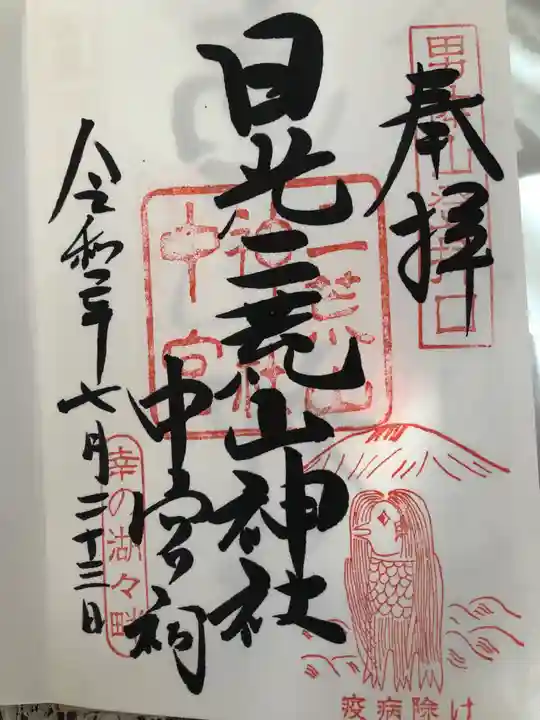 奉拝
男体山登拝口
日光二荒山神社
中宮祠
二荒山
神社
中宮
令和二年七月二十三日
幸の湖々畔
疫病除け